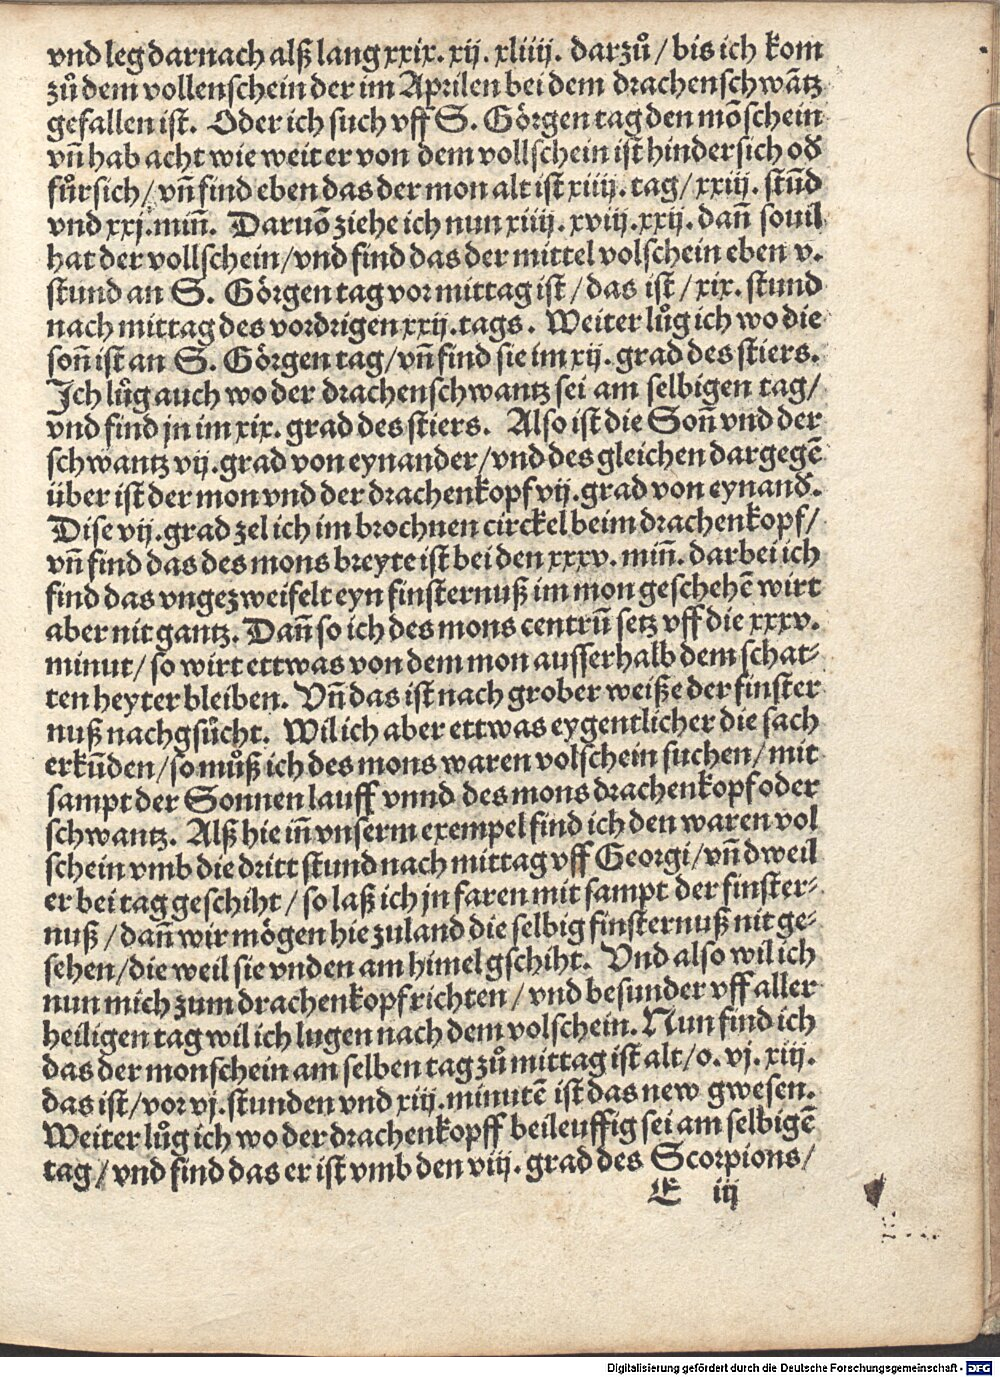 vnd leg darnach alß lang xxix. xij. xliiij. darzů / bis ich kom
zů dem vollenschein der im Aprilen bei dem drachenschwãtz
gefallen ist. Oder ich such vff S. Görgen tag den mõschein
vñ hab acht wie weit er von dem vollschein ist hindersich oď
fůrsich / vñ find eben das der mon alt ist xiiij. tag / xxiij. stũd
vnd xxj. miñ. Daruõ ziehe ich nun xiiij. xviij. xxij. dañ souil
hat der vollschein / vnd find das der mittel volschein eben v.
stund an S. Görgen tag vor mittag ist / das ist / xix. stund
nach mittag des vordrigen xxij. tags. Weiter lůg ich wo die
soñ ist an S. Görgen tag / vñ find sie im xij. grad des stiers.
Ich lůg auch wo der drachenschwantz sei am selbigen tag /
vnd find jn im xix. grad des stiers. Also ist die Soñ vnd der
schwantz vij. grad von eynander / vnd des gleichen dargegẽ
über ist der mon vnd der drachenkopf vij. grad von eynanď.
Dise vij. grad zel ich im brochnen circkel beim drachenkopf /
vñ find das des mons breyte ist bei den xxxv. miñ. darbei ich
find das vngezweifelt eyn finsternuß im mon geschehẽ wirt
aber nit gantz. Dañ so ich des mons centrũ setz vff die xxxv.
minut / so wirt ettwas von dem mon ausserhalb dem schat-
ten heyter bleiben. Vñ das ist nach grober weiße der finster
nuß nachgsůcht. Wil ich aber ettwas eygentlicher die sach
erkũden / so můß ich des mons waren volschein suchen / mit
sampt der Sonnen lauff vnnd des mons drachenkopf oder
schwantz. Alß hie iñ vnserm exempel find ich den waren vol
schein vmb die dritt stund nach mittag vff Georgi / vñ dweil
er bei tag geschiht / so laß ich jn faren mit sampt der finster-
nuß / dañ wir mögen hie zuland die selbig finsternuß nit ge-
sehen / die weil sie vnden am himel gschiht. Vnd also wil ich
nun mich zum drachenkopf richten / vnd besunder vff aller
heiligen tag wil ich lugen nach dem volschein. Nun find ich
das der monschein am selben tag zů mittag ist alt / o. vj. xiij.
das ist / vor vj. stunden vnd xiij. minutẽ ist das new gwesen.
Weiter lůg ich wo der drachenkopff beileuffig sei am selbigẽ
tag / vnd find das er ist vmb den viij. grad des Scorpions /
E iij
Digitalisierung gefördert durch die Deutsche Forschungsgemeinschaft - DFG